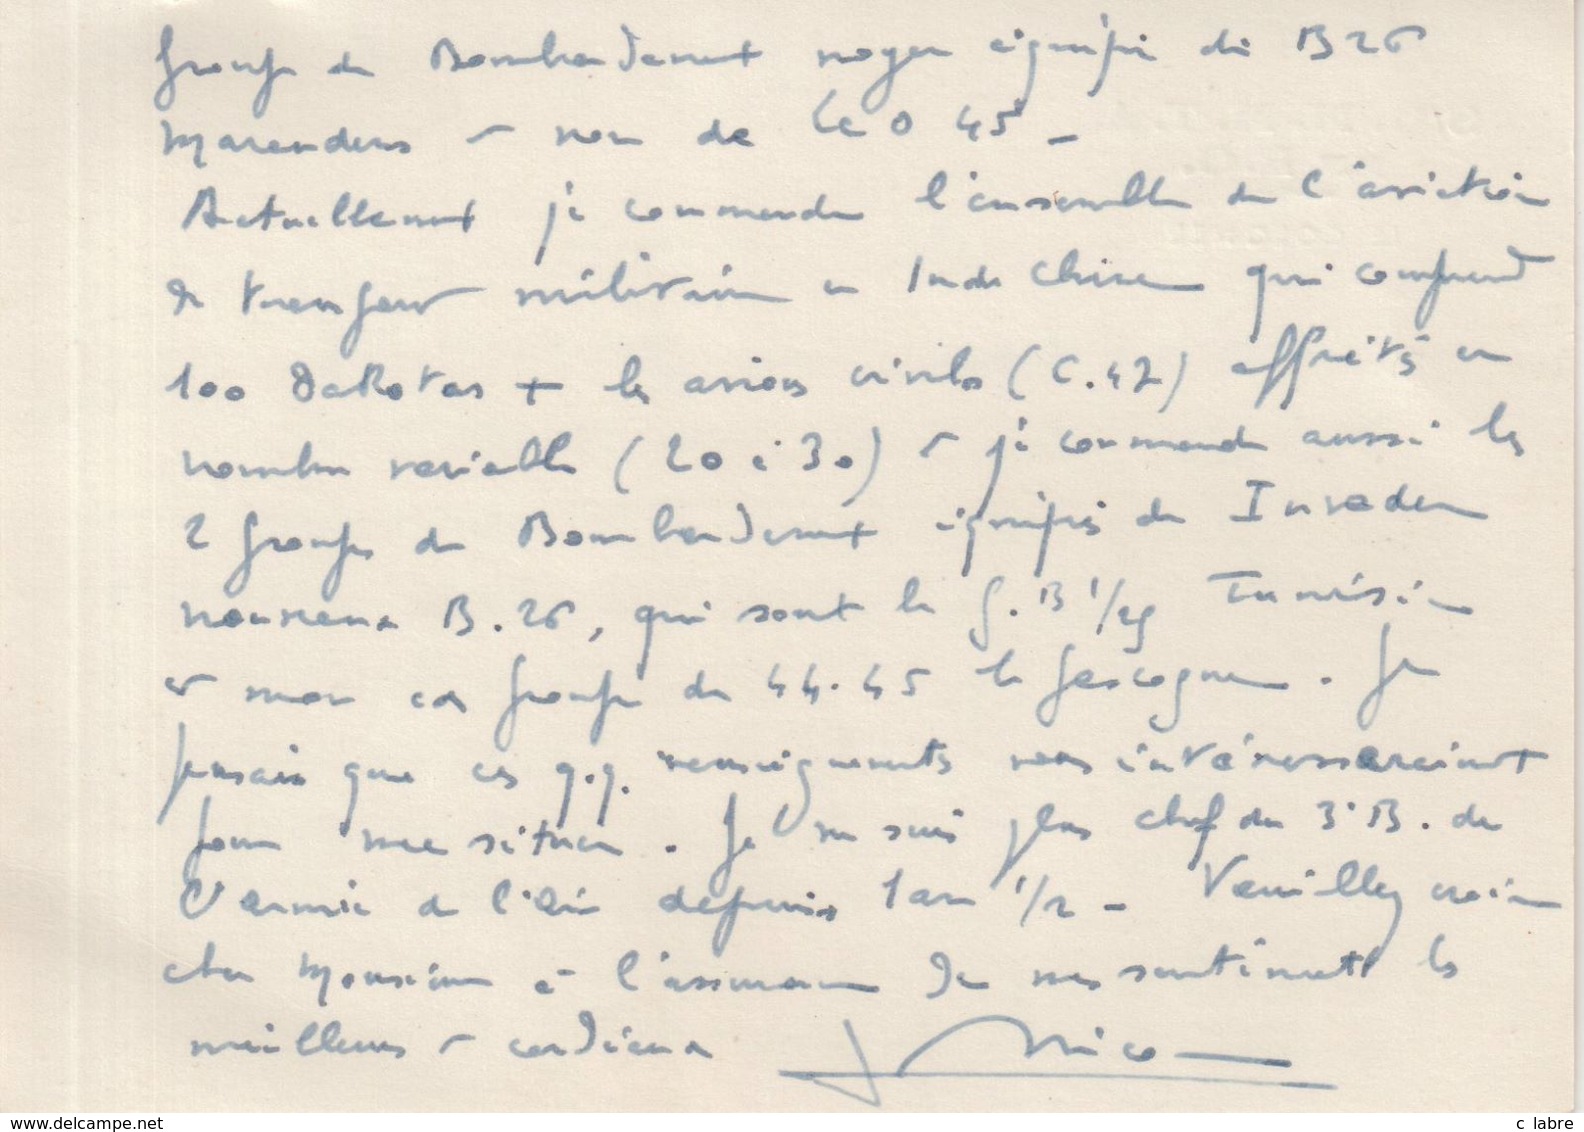 groupe de Bombardement moyen équipé de B26
Marauders et non de LeO 45 -
Actuellement je commande l'ensemble de l'aviation
de transport militaire en Indochine qui comprend
100 Dakotas + les avions civils (C.47) affrétés en
nombre variable (20 à 30) et je commande aussi les
2 groupes de Bombardement équipés de Invader
nouveau B.26, qui sont le G.B 1/25 Tunisie
et mon ex groupe de 44.45 le Gascogne. Je
pensais que ces q.q. renseignements vous intéresseraient
pour me situer. Je ne suis plus chef du 3°B. de
l'armée de l'air depuis 1 an 1/2 - Veuillez croire
cher Monsieur à l'assurance de mes sentiments les
meilleurs et cordiaux
delcampe.net
c labre